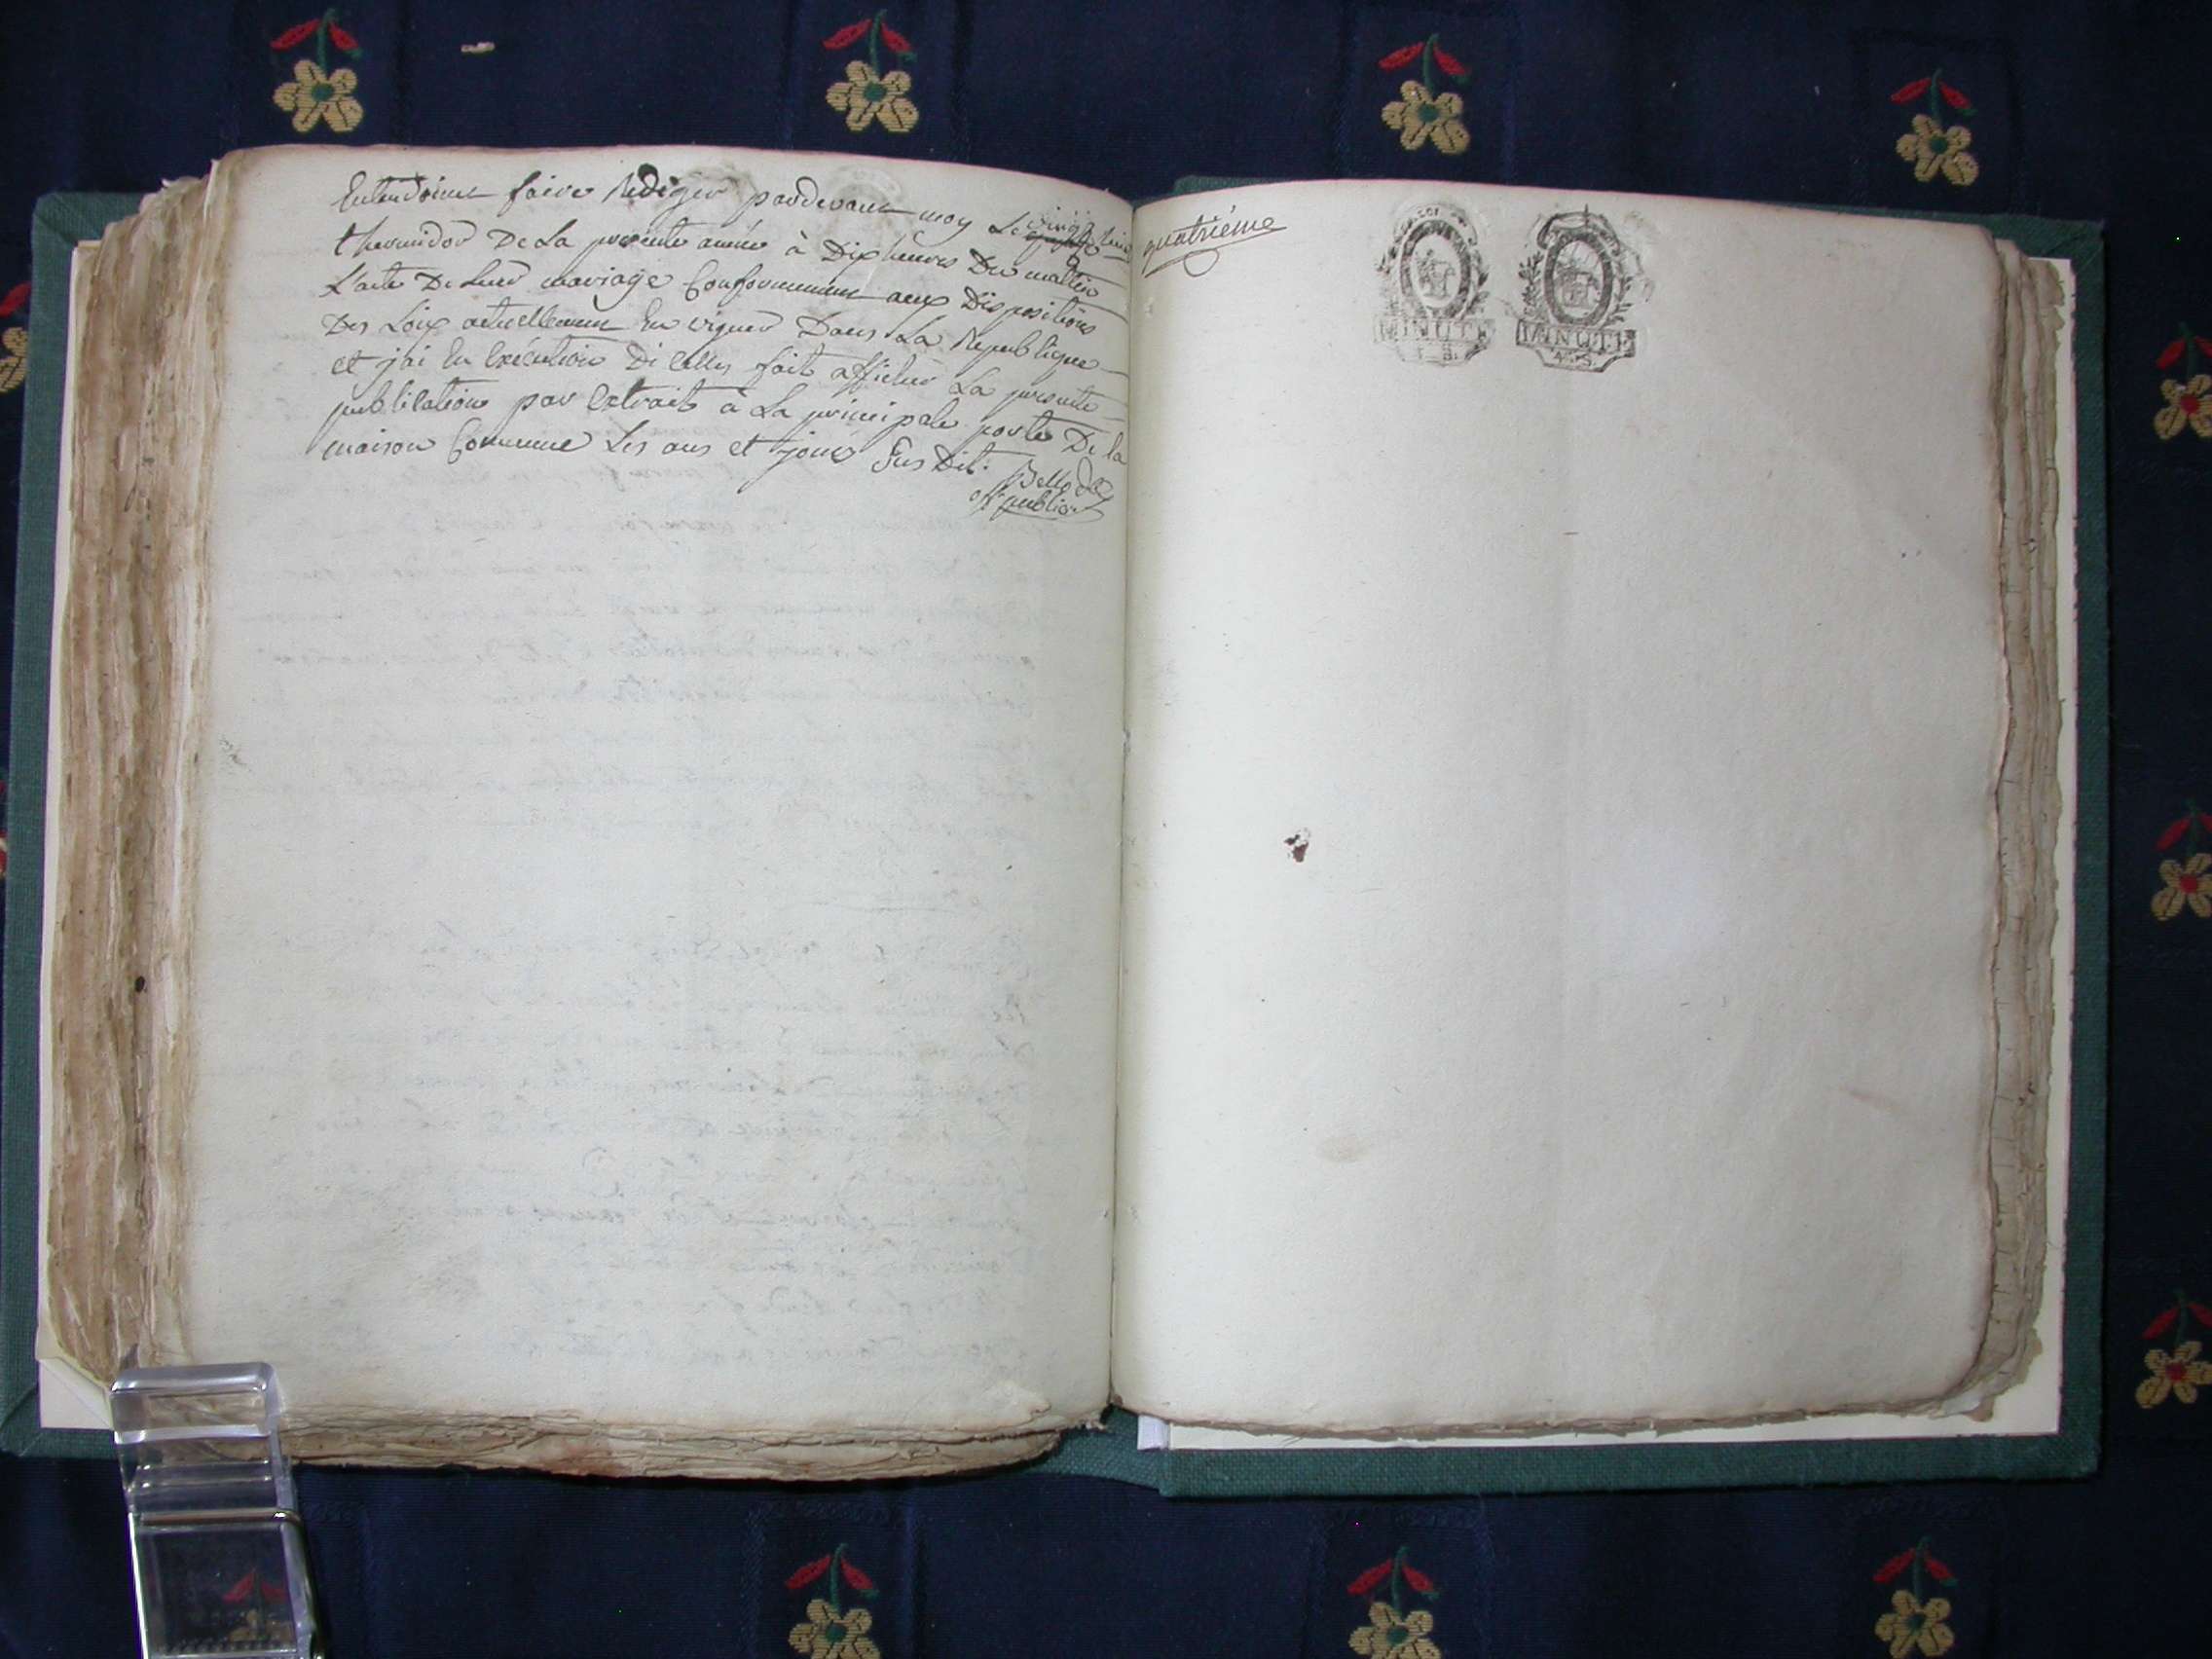 Entendoient faire Rediger pardevant moy Le
thermidor De La presente année à Dix heures Du mattin
L'acte De Leur mariage Conformement aux Dispositions
Des Loix actuellement En vigueur Dans La Republique
et j'ai En Exécution D'icelles fait afficher La presente
publication par Extrait à La principale porte De la
maison Commune Les ans et jour Sus Dit.
off. public
quatriéme
MINUTE MINUTE